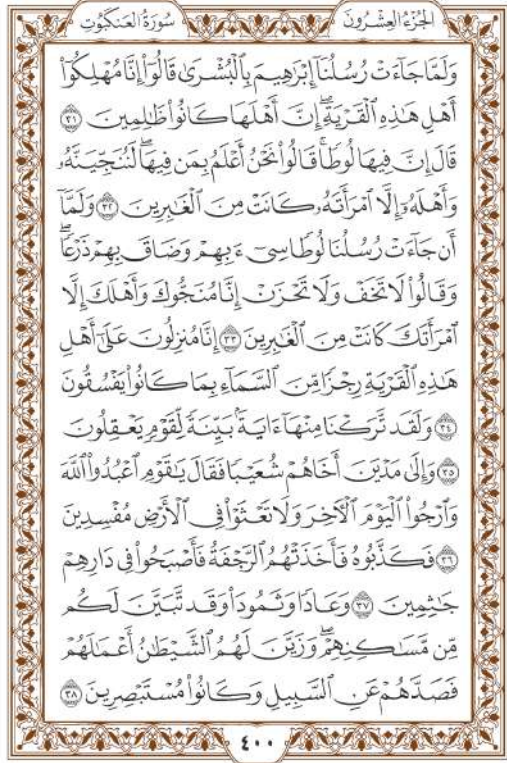 الجُزْءُ العِشْرُونَ
سُورَةُ العَنكَبُوتِ
وَلَمَّا جَآءَتْ رُسُلُنَآ إِبْرَٰهِيمَ بِٱلْبُشْرَىٰ قَالُوٓا۟ إِنَّا مُهْلِكُوٓا۟
أَهْلِ هَٰذِهِ ٱلْقَرْيَةِۖ إِنَّ أَهْلَهَا كَانُوا۟ ظَٰلِمِينَ ٣١
قَالَ إِنَّ فِيهَا لُوطًاۚ قَالُوا۟ نَحْنُ أَعْلَمُ بِمَن فِيهَاۖ لَنُنَجِّيَنَّهُۥ
وَأَهْلَهُۥٓ إِلَّا ٱمْرَأَتَهُۥ كَانَتْ مِنَ ٱلْغَٰبِرِينَ ٣٢ وَلَمَّآ
أَن جَآءَتْ رُسُلُنَا لُوطًا سِىٓءَ بِهِمْ وَضَاقَ بِهِمْ ذَرْعًاۖ
وَقَالُوا۟ لَا تَخَفْ وَلَا تَحْزَنْ إِنَّا مُنَجُّوكَ وَأَهْلَكَ إِلَّا
ٱمْرَأَتَكَ كَانَتْ مِنَ ٱلْغَٰبِرِينَ ٣٣ إِنَّا مُنزِلُونَ عَلَىٰٓ أَهْلِ
هَٰذِهِ ٱلْقَرْيَةِ رِجْزًا مِّنَ ٱلسَّمَآءِ بِمَا كَانُوا۟ يَفْسُقُونَ
٣٤ وَلَقَد تَّرَكْنَا مِنْهَآ ءَايَةًۢ بَيِّنَةً لِّقَوْمٍ يَعْقِلُونَ
٣٥ وَإِلَىٰ مَدْيَنَ أَخَاهُمْ شُعَيْبًا فَقَالَ يَٰقَوْمِ ٱعْبُدُوا۟ ٱللَّهَ
وَٱرْجُوا۟ ٱلْيَوْمَ ٱلْءَاخِرَ وَلَا تَعْثَوْا۟ فِى ٱلْأَرْضِ مُفْسِدِينَ
٣٦ فَكَذَّبُوهُ فَأَخَذَتْهُمُ ٱلرَّجْفَةُ فَأَصْبَحُوا۟ فِى دَارِهِمْ
جَٰثِمِينَ ٣٧ وَعَادًا وَثَمُودَا۟ وَقَد تَّبَيَّنَ لَكُم
مِّن مَّسَٰكِنِهِمْۖ وَزَيَّنَ لَهُمُ ٱلشَّيْطَٰنُ أَعْمَٰلَهُمْ
فَصَدَّهُمْ عَنِ ٱلسَّبِيلِ وَكَانُوا۟ مُسْتَبْصِرِينَ ٣٨
٤٠٠